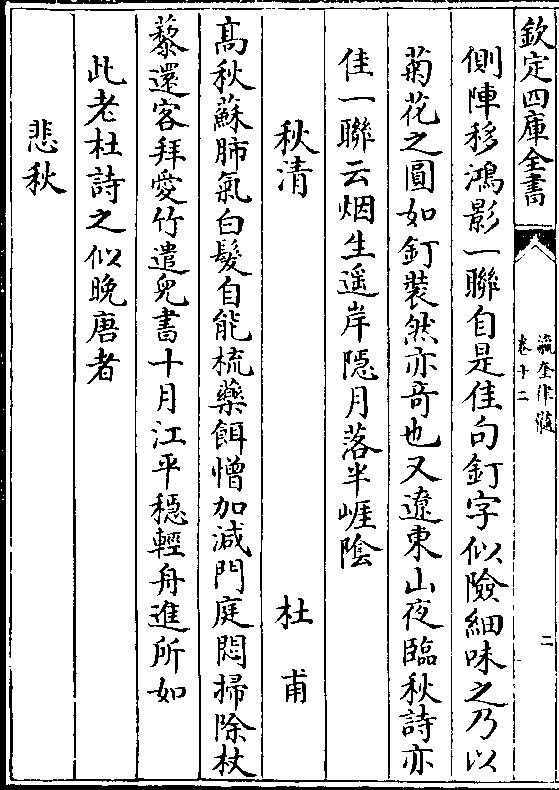 欽定四庫全書
瀛奎律髓
卷十二
二
側陣移鴻影一聯自是佳句釘字似險細味之乃以
菊花之圓如釘裝然亦奇也又遼東山夜臨秋詩亦
佳一聯云烟生遥岸隠月落半崕陰
秋清 杜甫
髙秋蘇肺氣白髮自能梳藥餌憎加減門庭悶掃除杖
藜還客拜愛竹遣兒書十月江平穩輕舟進所如
此老杜詩之似晚唐者
悲秋